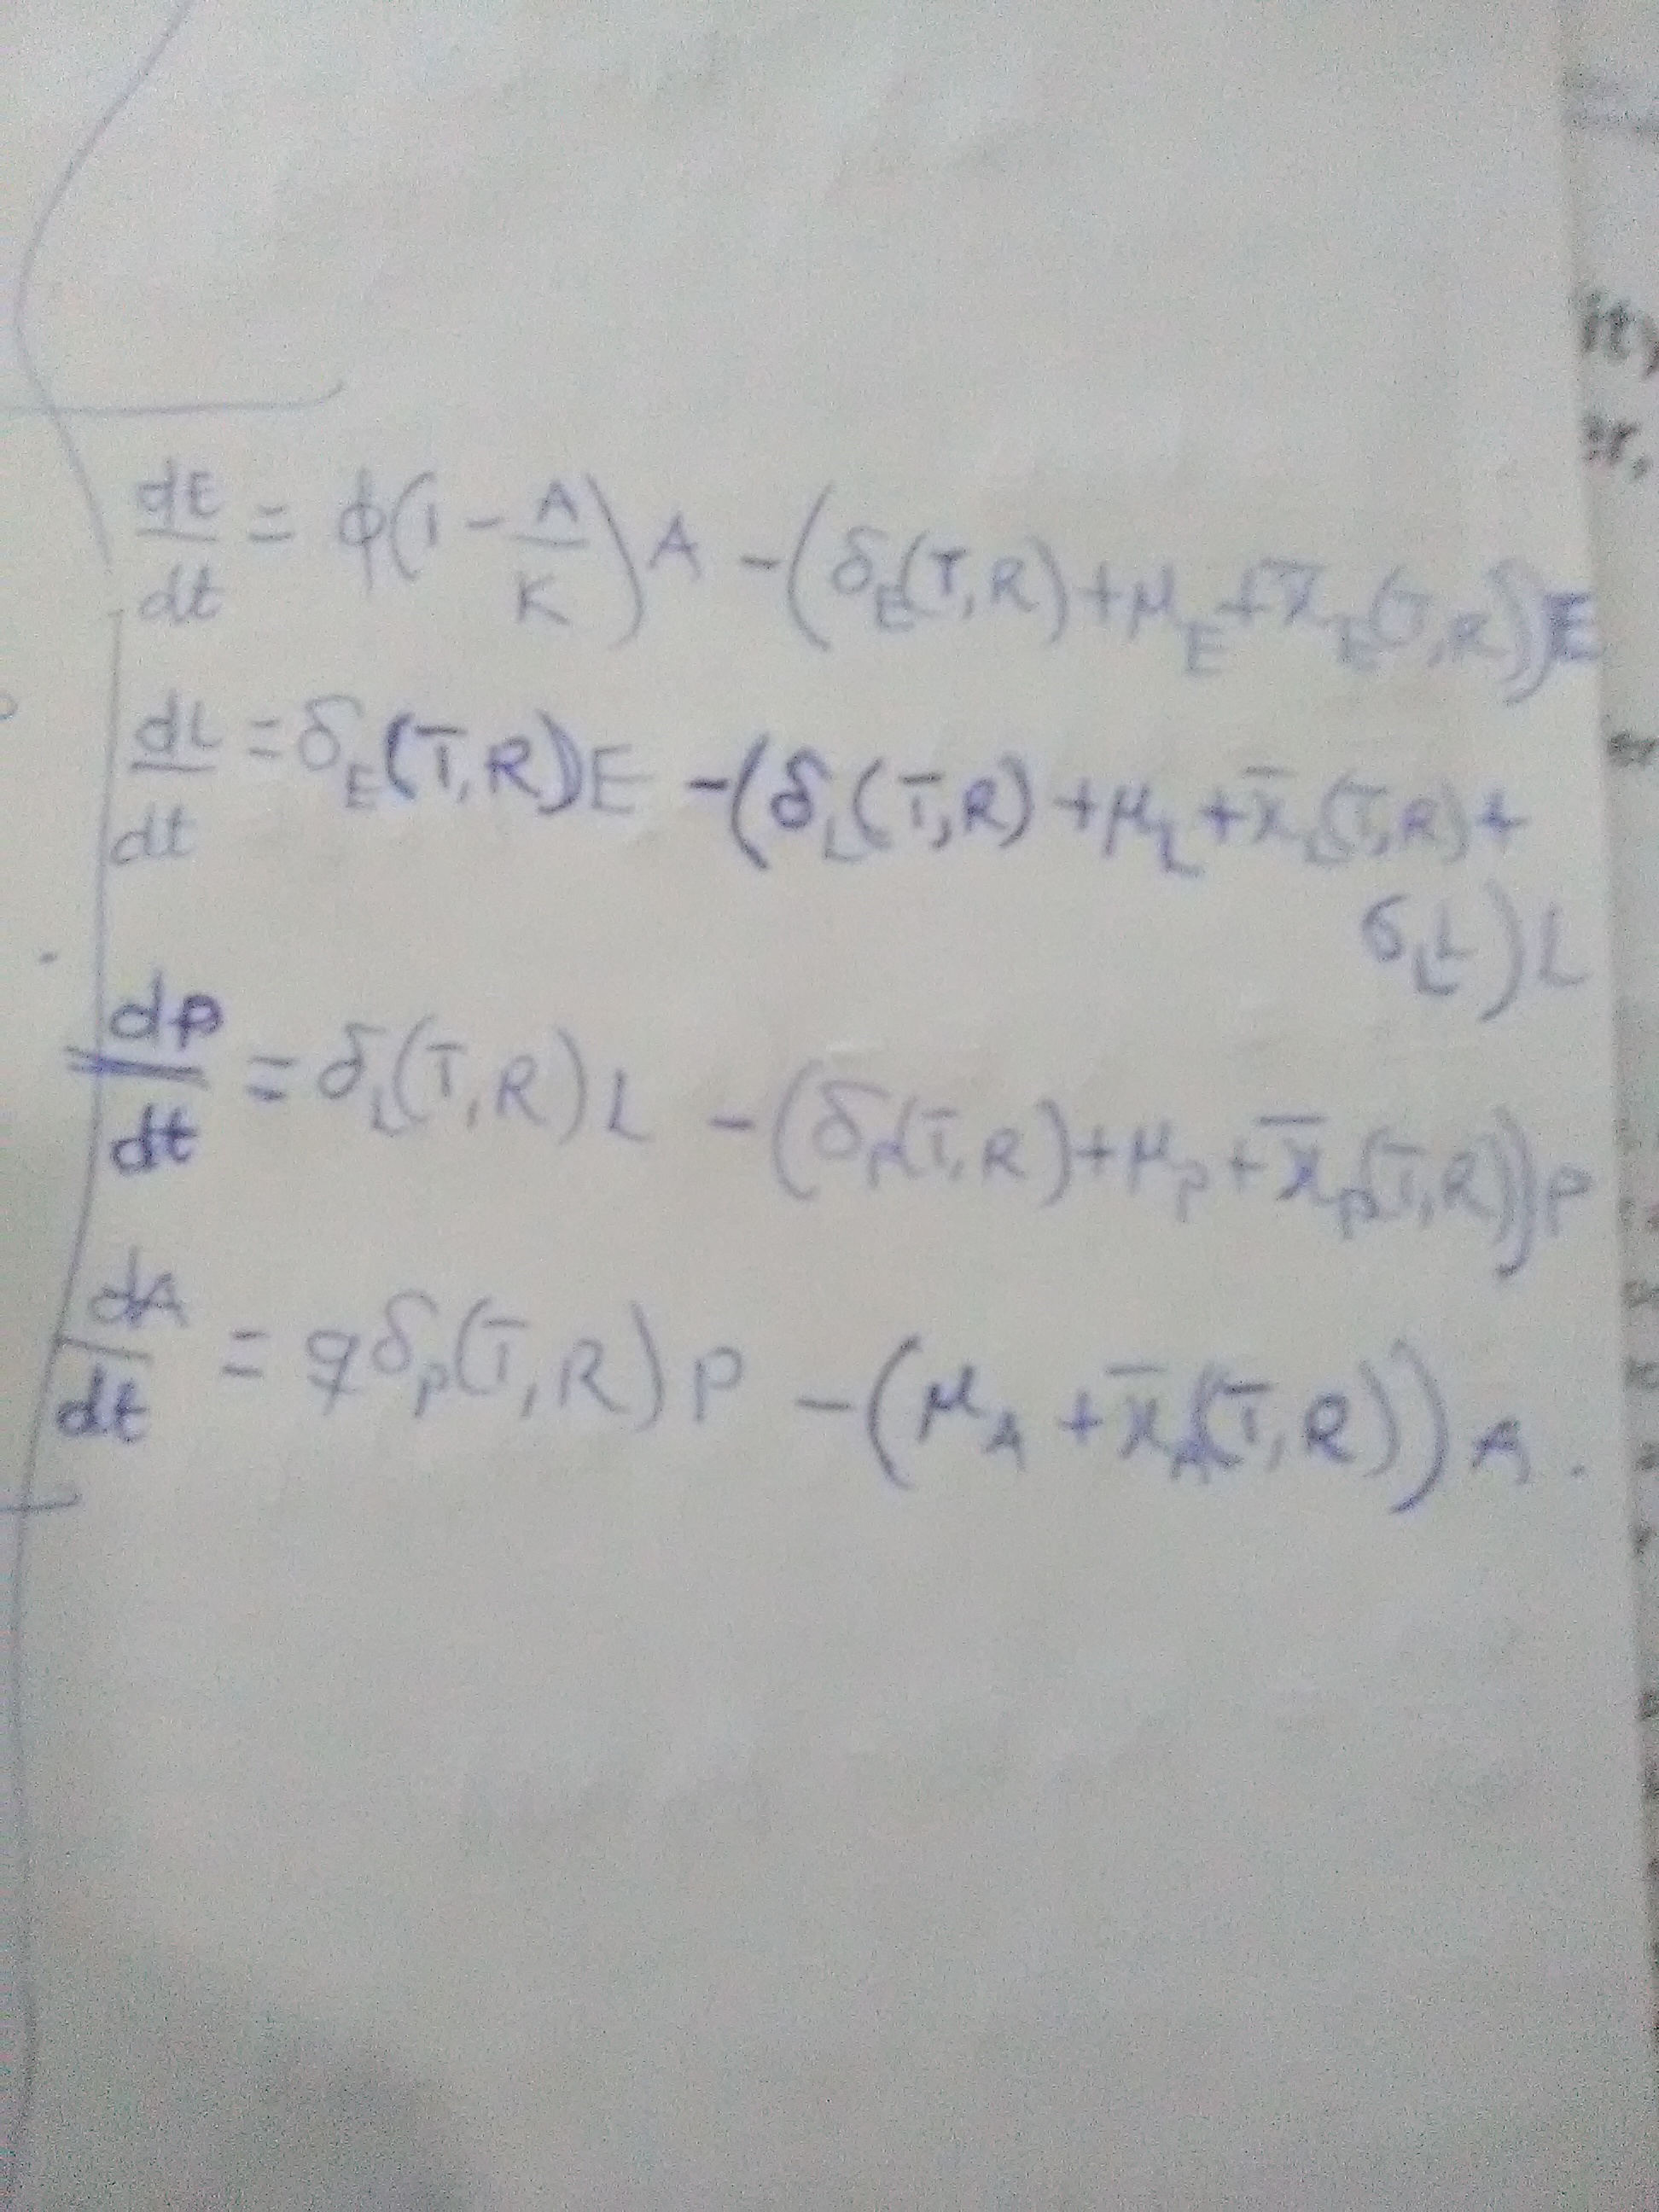 dE/dt = φ(1 - A/K)A - (δ_E(T,R) + μ_E + π̅_E(T,R))E
dL/dt = δ_E(T,R)E - (δ_L(T,R) + μ_L + π̅_L(T,R) +
δ_L L)L
dP/dt = δ_L(T,R)L - (δ_P(T,R) + μ_P + π̅_P(T,R))P
dA/dt = qδ_P(T,R)P - (μ_A + π̅_A(T,R))A.
er,